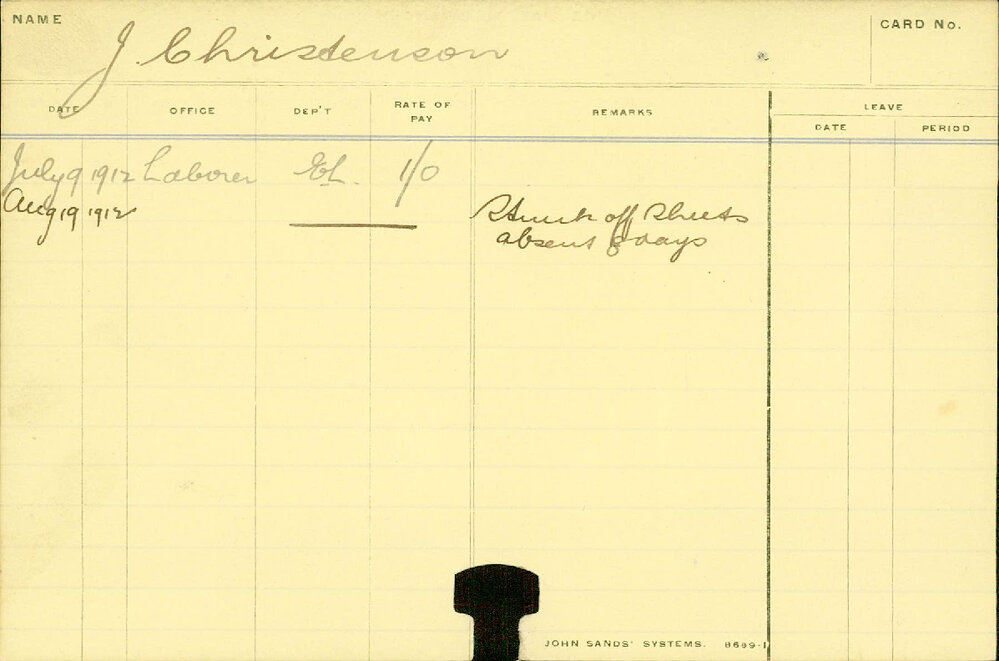 NAME
J. Christenson
CARD No.
DATE OFFICE DEP'T RATE OF PAY REMARKS LEAVE
DATE PERIOD
July 9 1912 Laborer EL. 1/0
Aug 19 1912 Struck off Sheets
absent 8 days
JOHN SANDS' SYSTEMS. 8689-1